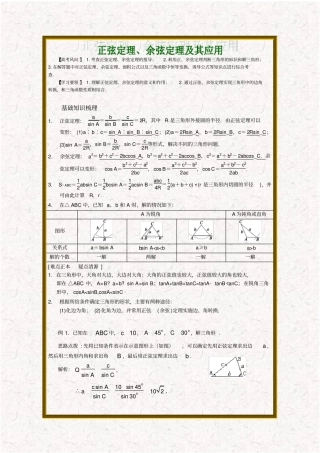 正弦定理、余弦定理及其应用
【高考风向】 1.考查正弦定理、余弦定理的推导； 2.利用正、余弦定理判断三角形的形状和解三角形；
3.在解答题中对正弦定理、余弦定理、面积公式以及三角函数中恒等变换、诱导公式等知识点进行综合考查.
【学习要领】 1.理解正弦定理、余弦定理的意义和作用； 2.通过正弦、余弦定理实现三角形中的边角转换, 和三角函数性质相结合.
基础知识梳理
1. 正弦定理: a/sin A = b/sin B = c/sin C = 2R, 其中 R 是三角形外接圆的半径. 由正弦定理可以
变形: (1)a∶b∶c=sin_A∶sin_B∶sin_C; (2)a=2Rsin_A, b=2Rsin_B, c=2Rsin_C;
(3)sin A= a/2R, sin B= b/2R, sin C= c/2R 等形式, 解决不同的三角形问题.
2. 余弦定理: a²=b²+c²-2bccos_A, b²=a²+c²-2accos_B, c²=a²+b²-2abcos_C. 余
弦定理可以变形: cos A= b²+c²-a²/2bc, cos B= a²+c²-b²/2ac, cos C= a²+b²-c²/2ab.
3. S△ABC= 1/2 absin C= 1/2 bcsin A= 1/2 acsin B= abc/4R = 1/2 (a+b+c)·r(r 是三角形内切圆的半径 ), 并
可由此计算 R、r.
4. 在△ABC 中, 已知 a、b 和 A 时, 解的情况如下:
A 为锐角 A 为钝角或直角
图形
关系式 a=bsin A bsin A<a<b a≥b a>b
解的个数 一解 两解 一解 一解
[难点正本 疑点清源 ]
1. 在三角形中, 大角对大边, 大边对大角; 大角的正弦值也较大, 正弦值较大的角也较大,
即在△ABC 中, A>B? a>b? sin A>sin B; tanA+tanB+tanC=tanA·tanB·tanC; 在锐角三角
形中, cosA<sinB,cosA<sinC
2. 根据所给条件确定三角形的形状, 主要有两种途径:
(1)化边为角; (2)化角为边, 并常用正弦 (余弦)定理实施边、角转换.
例 1. 已知在 ABC中, c 10, A 45°, C 30°, 解三角形 .
思路点拨: 先将已知条件表示在示意图形上（如图） , 可以确定先用正弦定理求出边 a ,
然后用三角形内角和求出角 B , 最后用正弦定理求出边 b .
解析: Q a/sin A c/sin C ,
∴ a csin A/sin C 10 sin 45°/sin 30° 10√2 ,